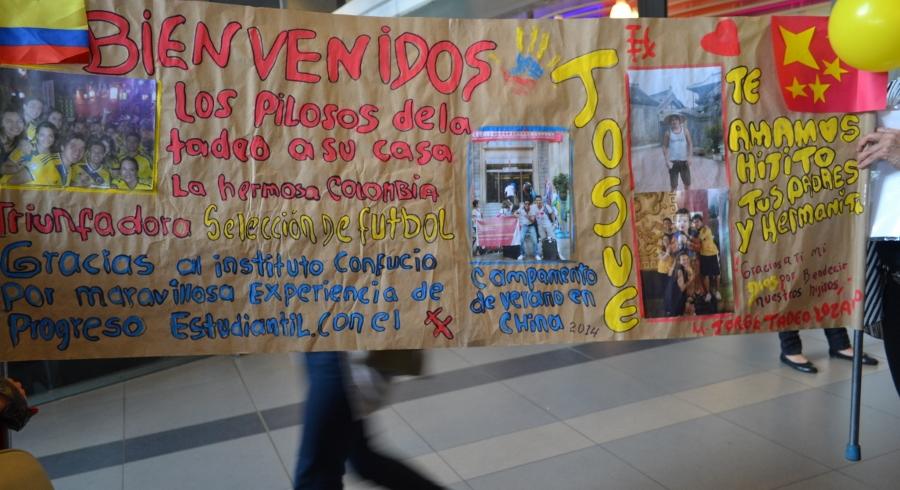 BIENVENIDOS
Los Pilosos dela
tadeo a su casa
La hermosa COLOMBIA
Triunfadora Selección De futbol
Gracias al instituto Confucio
Por maravillosa Experiencia de
Progreso EstudiantiL.con el
Campamento
de verano en
China 2014
JOSUE
TE
AMAMOS
HIJITO
TUS PADRES
y HermaniTa
Gracias a Ti mi
Dios por Bendecir
nuestros hijitos,
U. JORGE TADEO LOZANO